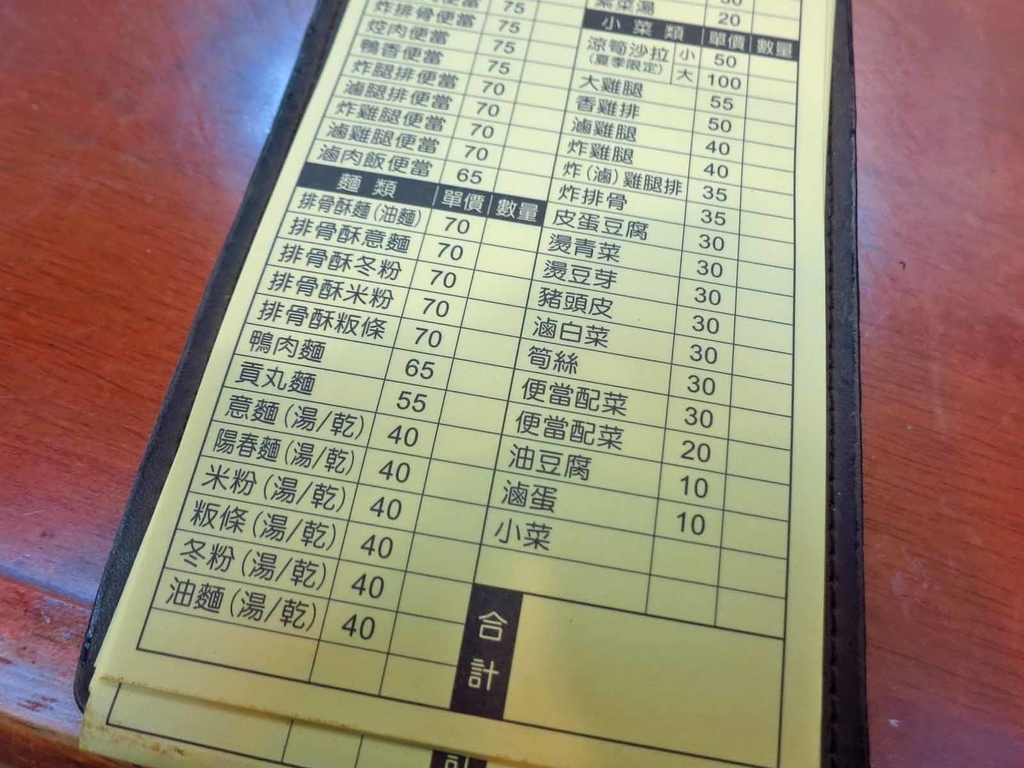 便當 75
炸排骨便當 75
焢肉便當 75
鴨香便當 75
炸腿排便當 70
滷腿排便當 70
炸雞腿便當 70
滷雞腿便當 70
滷肉飯便當 65
麵 類 單價 數量
排骨酥麵(油麵) 70
排骨酥意麵 70
排骨酥冬粉 70
排骨酥米粉 70
排骨酥粄條 70
鴨肉麵 65
貢丸麵 55
意麵(湯/乾) 40
陽春麵(湯/乾) 40
米粉(湯/乾) 40
粄條(湯/乾) 40
冬粉(湯/乾) 40
油麵(湯/乾) 40
紫菜湯 20
小 菜 類 單價 數量
涼筍沙拉 小 50
(夏季限定) 大 100
大雞腿 55
香雞排 50
滷雞腿 40
炸雞腿 40
炸(滷)雞腿排 35
炸排骨 35
皮蛋豆腐 30
燙青菜 30
燙豆芽 30
豬頭皮 30
滷白菜 30
筍絲 30
便當配菜 30
便當配菜 20
油豆腐 10
滷蛋 10
小菜
合計